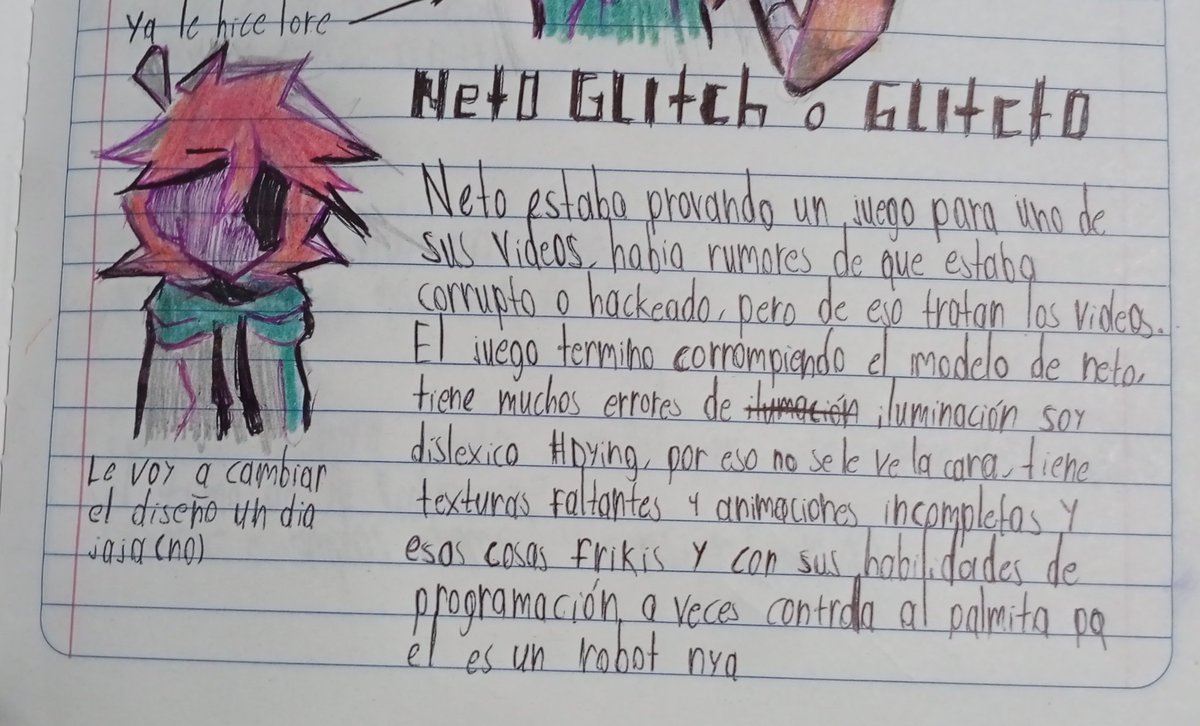 ya le hice lore
Neto Glitch o Glitcto
Neto estaba provando un juego para uno de
sus videos, habia rumores de que estaba
corrupto o hackeado, pero de eso tratan los videos.
El juego termino corrompiendo el modelo de neto,
tiene muchos errores de ilumación iluminación soy
dislexico #Dying, por eso no se le ve la cara, tiene
texturas faltantes y animaciones incompletas y
esas cosas frikis y con sus habilidades de
programación, a veces controla al palmita pq
el es un robot nya
Le voy a cambiar
el diseño un dia
jaja (no)